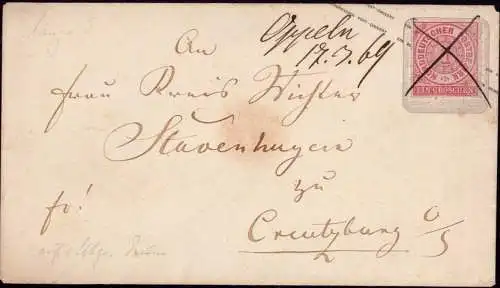 Oppeln
17.3.69
NORDDEUTSCHER POSTBEZIRK
EIN GROSCHEN
An
Frau Kreis Richter
Stavenhagen
zu
fr!
Creutzburg O/S